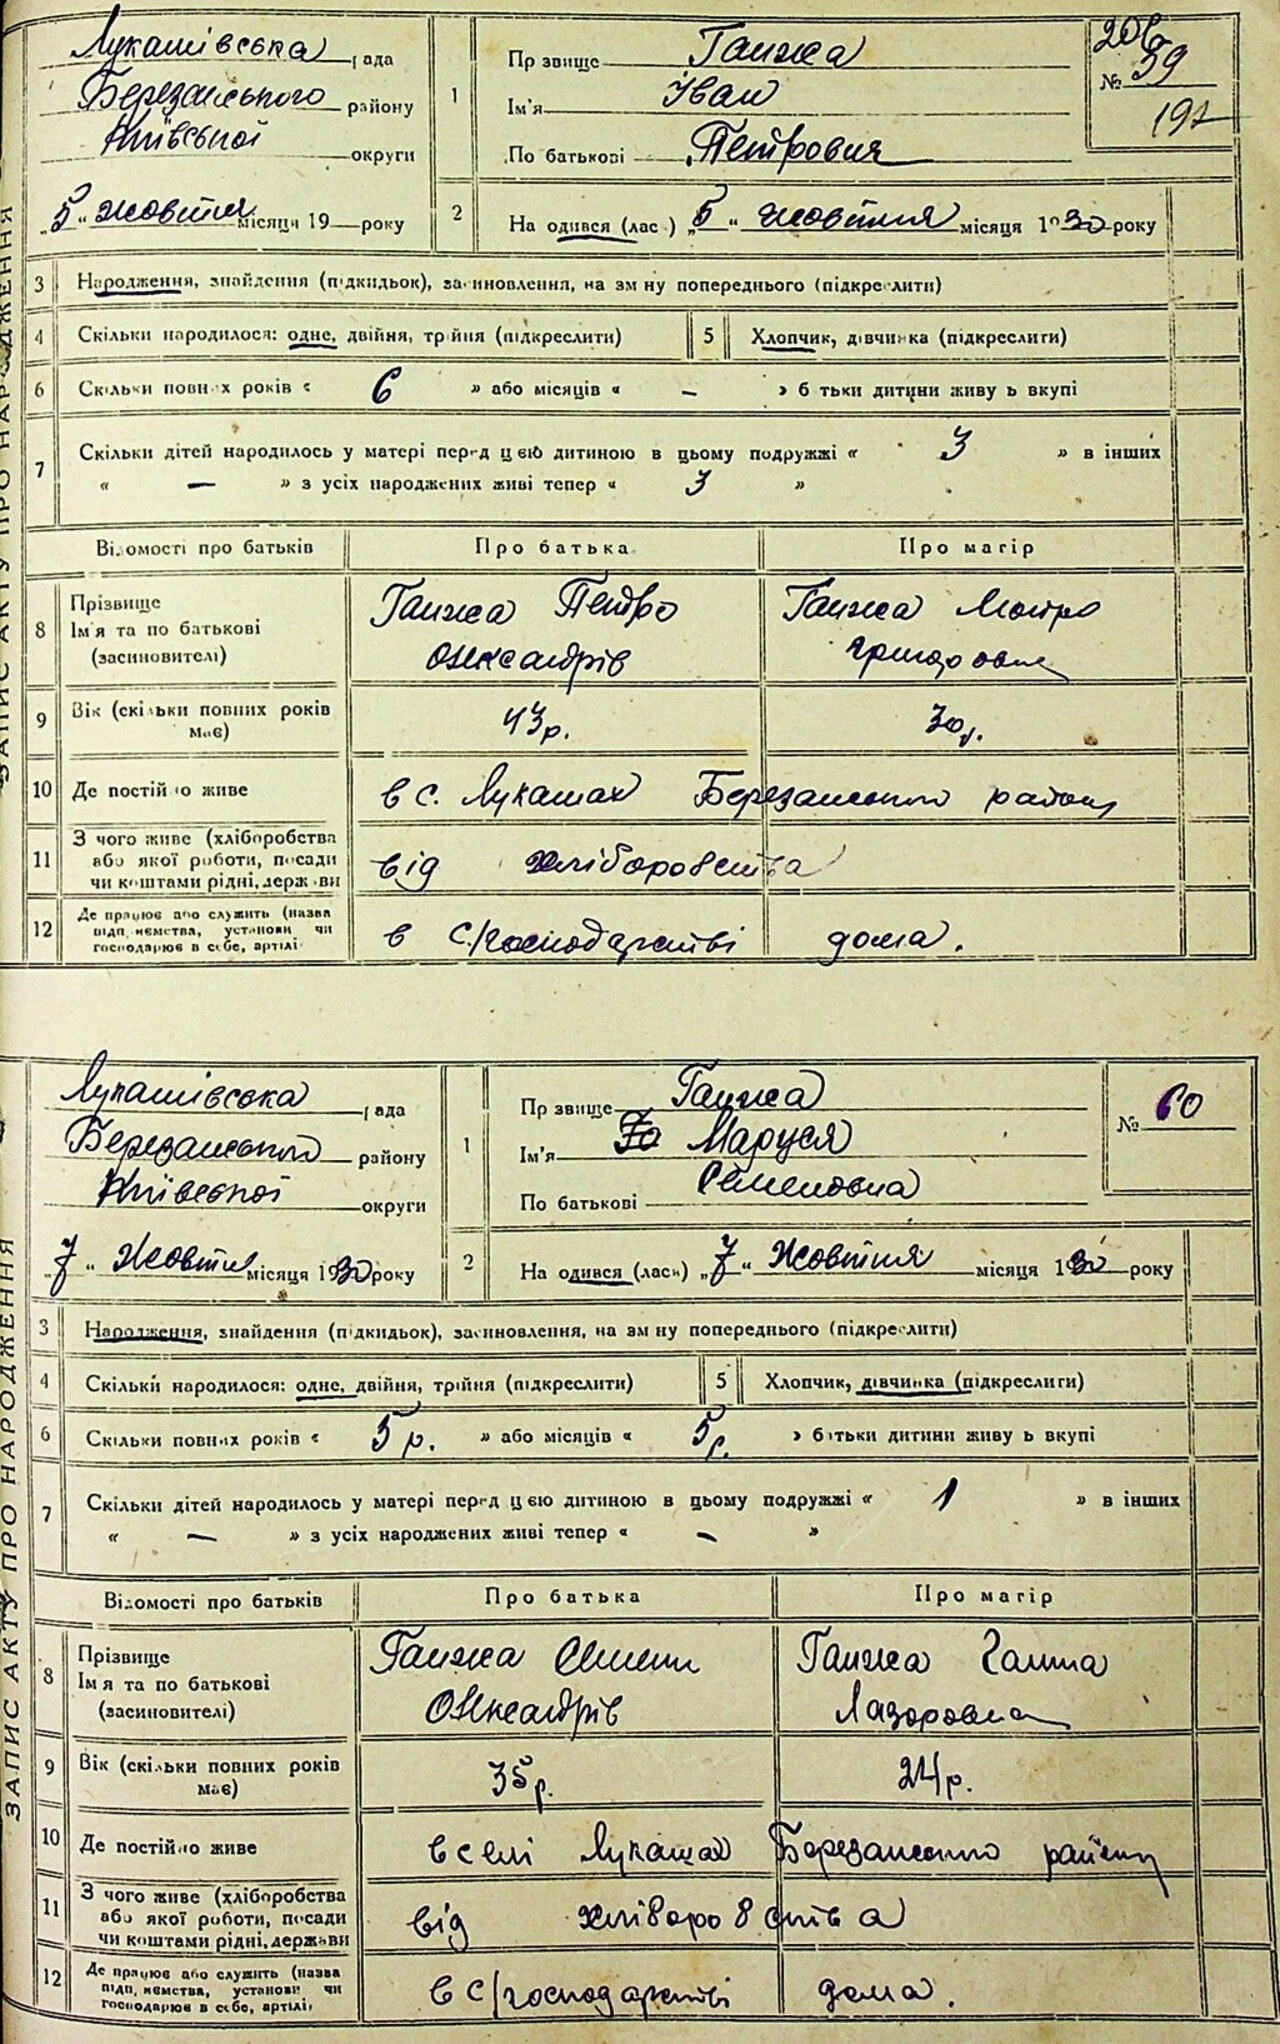 ЗАПИС АКТУ ПРО НАРОДЖЕННЯ
Лукашівська рада
Березанського району
Київської округи
„5“ жовтня місяця 19 року
1
Прізвище Ганжа
Ім'я Іван
По батькові Петрович
206
№ 59
197
2
На одився (лас ) „5“ жовтня місяця 1930 року
3 Народження, знайдення (підкидьок), засиновлення, на зм ну попереднього (підкреслити)
4 Скільки народилося: одне, двійня, трійня (підкреслити)
5 Хлопчик, дівчинка (підкреслити)
6 Скільки повних років « 6 » або місяців « – » б тьки дитини живу ь вкупі
7 Скільки дітей народилось у матері перед цею дитиною в цьому подружжі « 3 » в інших
« — » з усіх народжених живі тепер « 3 »
Відомості про батьків Про батька Про матір
8 Прізвище Ім'я та по батькові (засиновителі)
Ганжа Петро
Олександрів
Ганжа Мотря
Григоровна
9 Вік (скільки повних років має) 43р. 30р.
10 Де постійно живе в с. Лукашах Березанського району
11 З чого живе (хліборобства
або якої роботи, посади
чи коштами рідні, держави
від хліборобства
12 Де працює або служить (назва
підп иємства, установи чи
господарює в себе, артілі
в с/господарстві дома.
ЗАПИС АКТУ ПРО НАРОДЖЕННЯ
Лукашівська рада
Березанського району
Київської округи
„7“ жовтня місяця 1930 року
1
Прізвище Ганжа
Ім'я Маруся
По батькові Семеновна
№ 60
2
На одився (лась) „7“ жовтня місяця 1930 року
3 Народження, знайдення (підкидьок), засиновлення, на зм ну попереднього (підкреслити)
4 Скільки народилося: одне, двійня, трійня (підкреслити)
5 Хлопчик, дівчинка (підкреслити)
6 Скільки повних років « 5р. » або місяців « 5р. » батьки дитини живу ь вкупі
7 Скільки дітей народилось у матері перед цею дитиною в цьому подружжі « 1 » в інших
« — » з усіх народжених живі тепер « – »
Відомості про батьків Про батька Про матір
8 Прізвище
Ім'я та по батькові
(засиновителі)
Ганжа Семен
Олександрів
Ганжа Ганна
Лазоровна
9 Вік (скільки повних років має) 35р. 24р.
10 Де постійно живе в селі Лукашах Березанського району
11 З чого живе (хліборобства
або якої роботи, посади
чи коштами рідні, держави
від хліборобства
12 Де працює або служить (назва
підп иємства, установи чи
господарює в себе, артілі,
в с/господарстві дома.